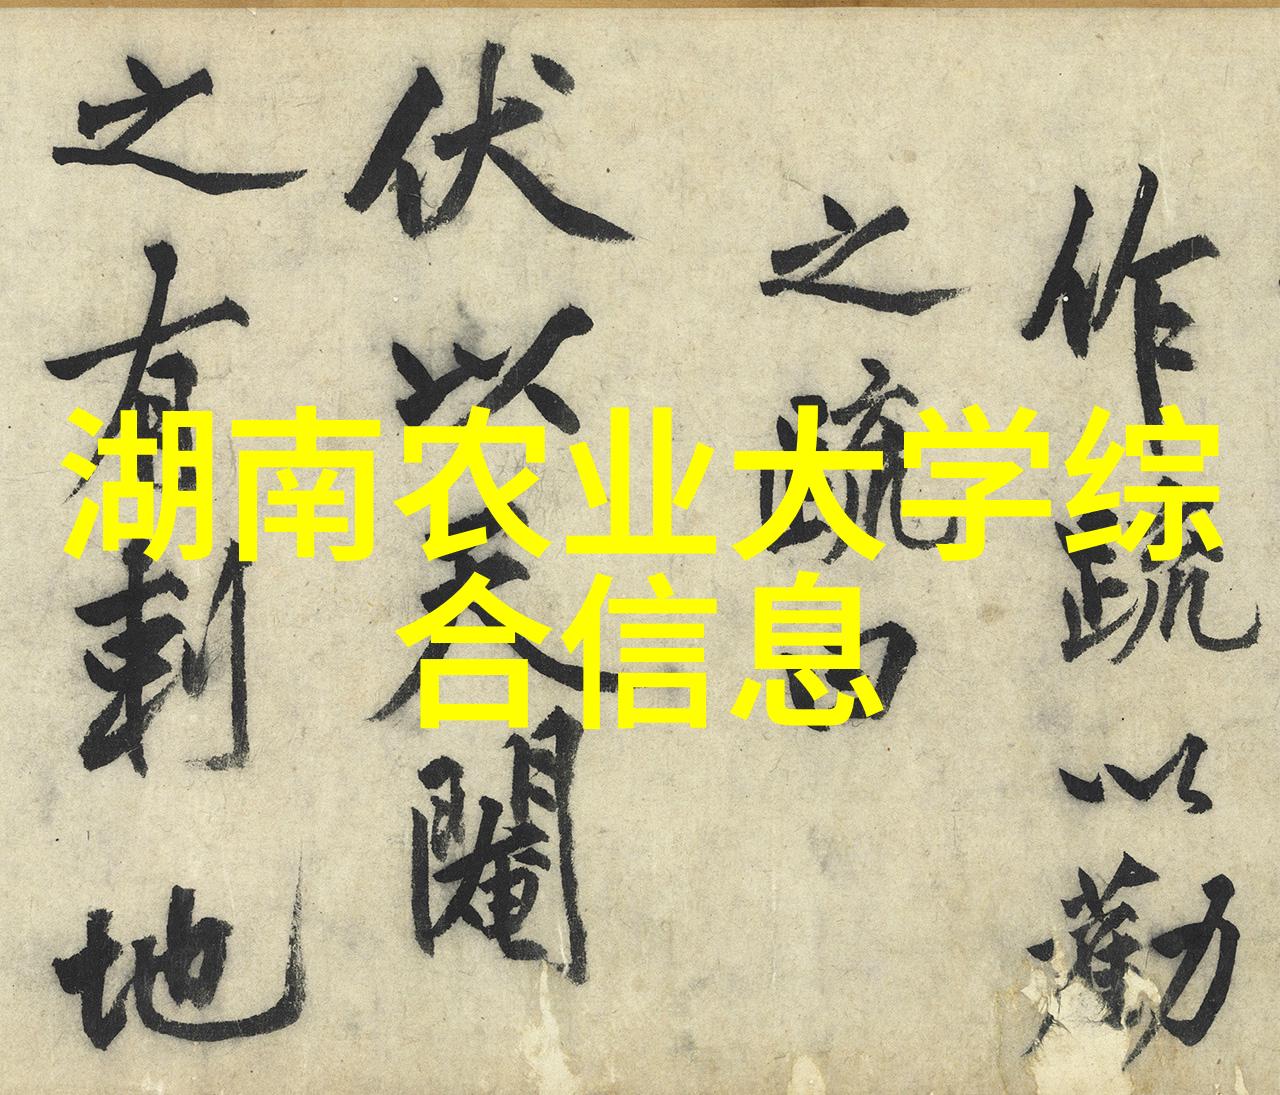 作疏以勸
之疏曰
伏以天閹
之有刺地
湖南农业大学综
合信息